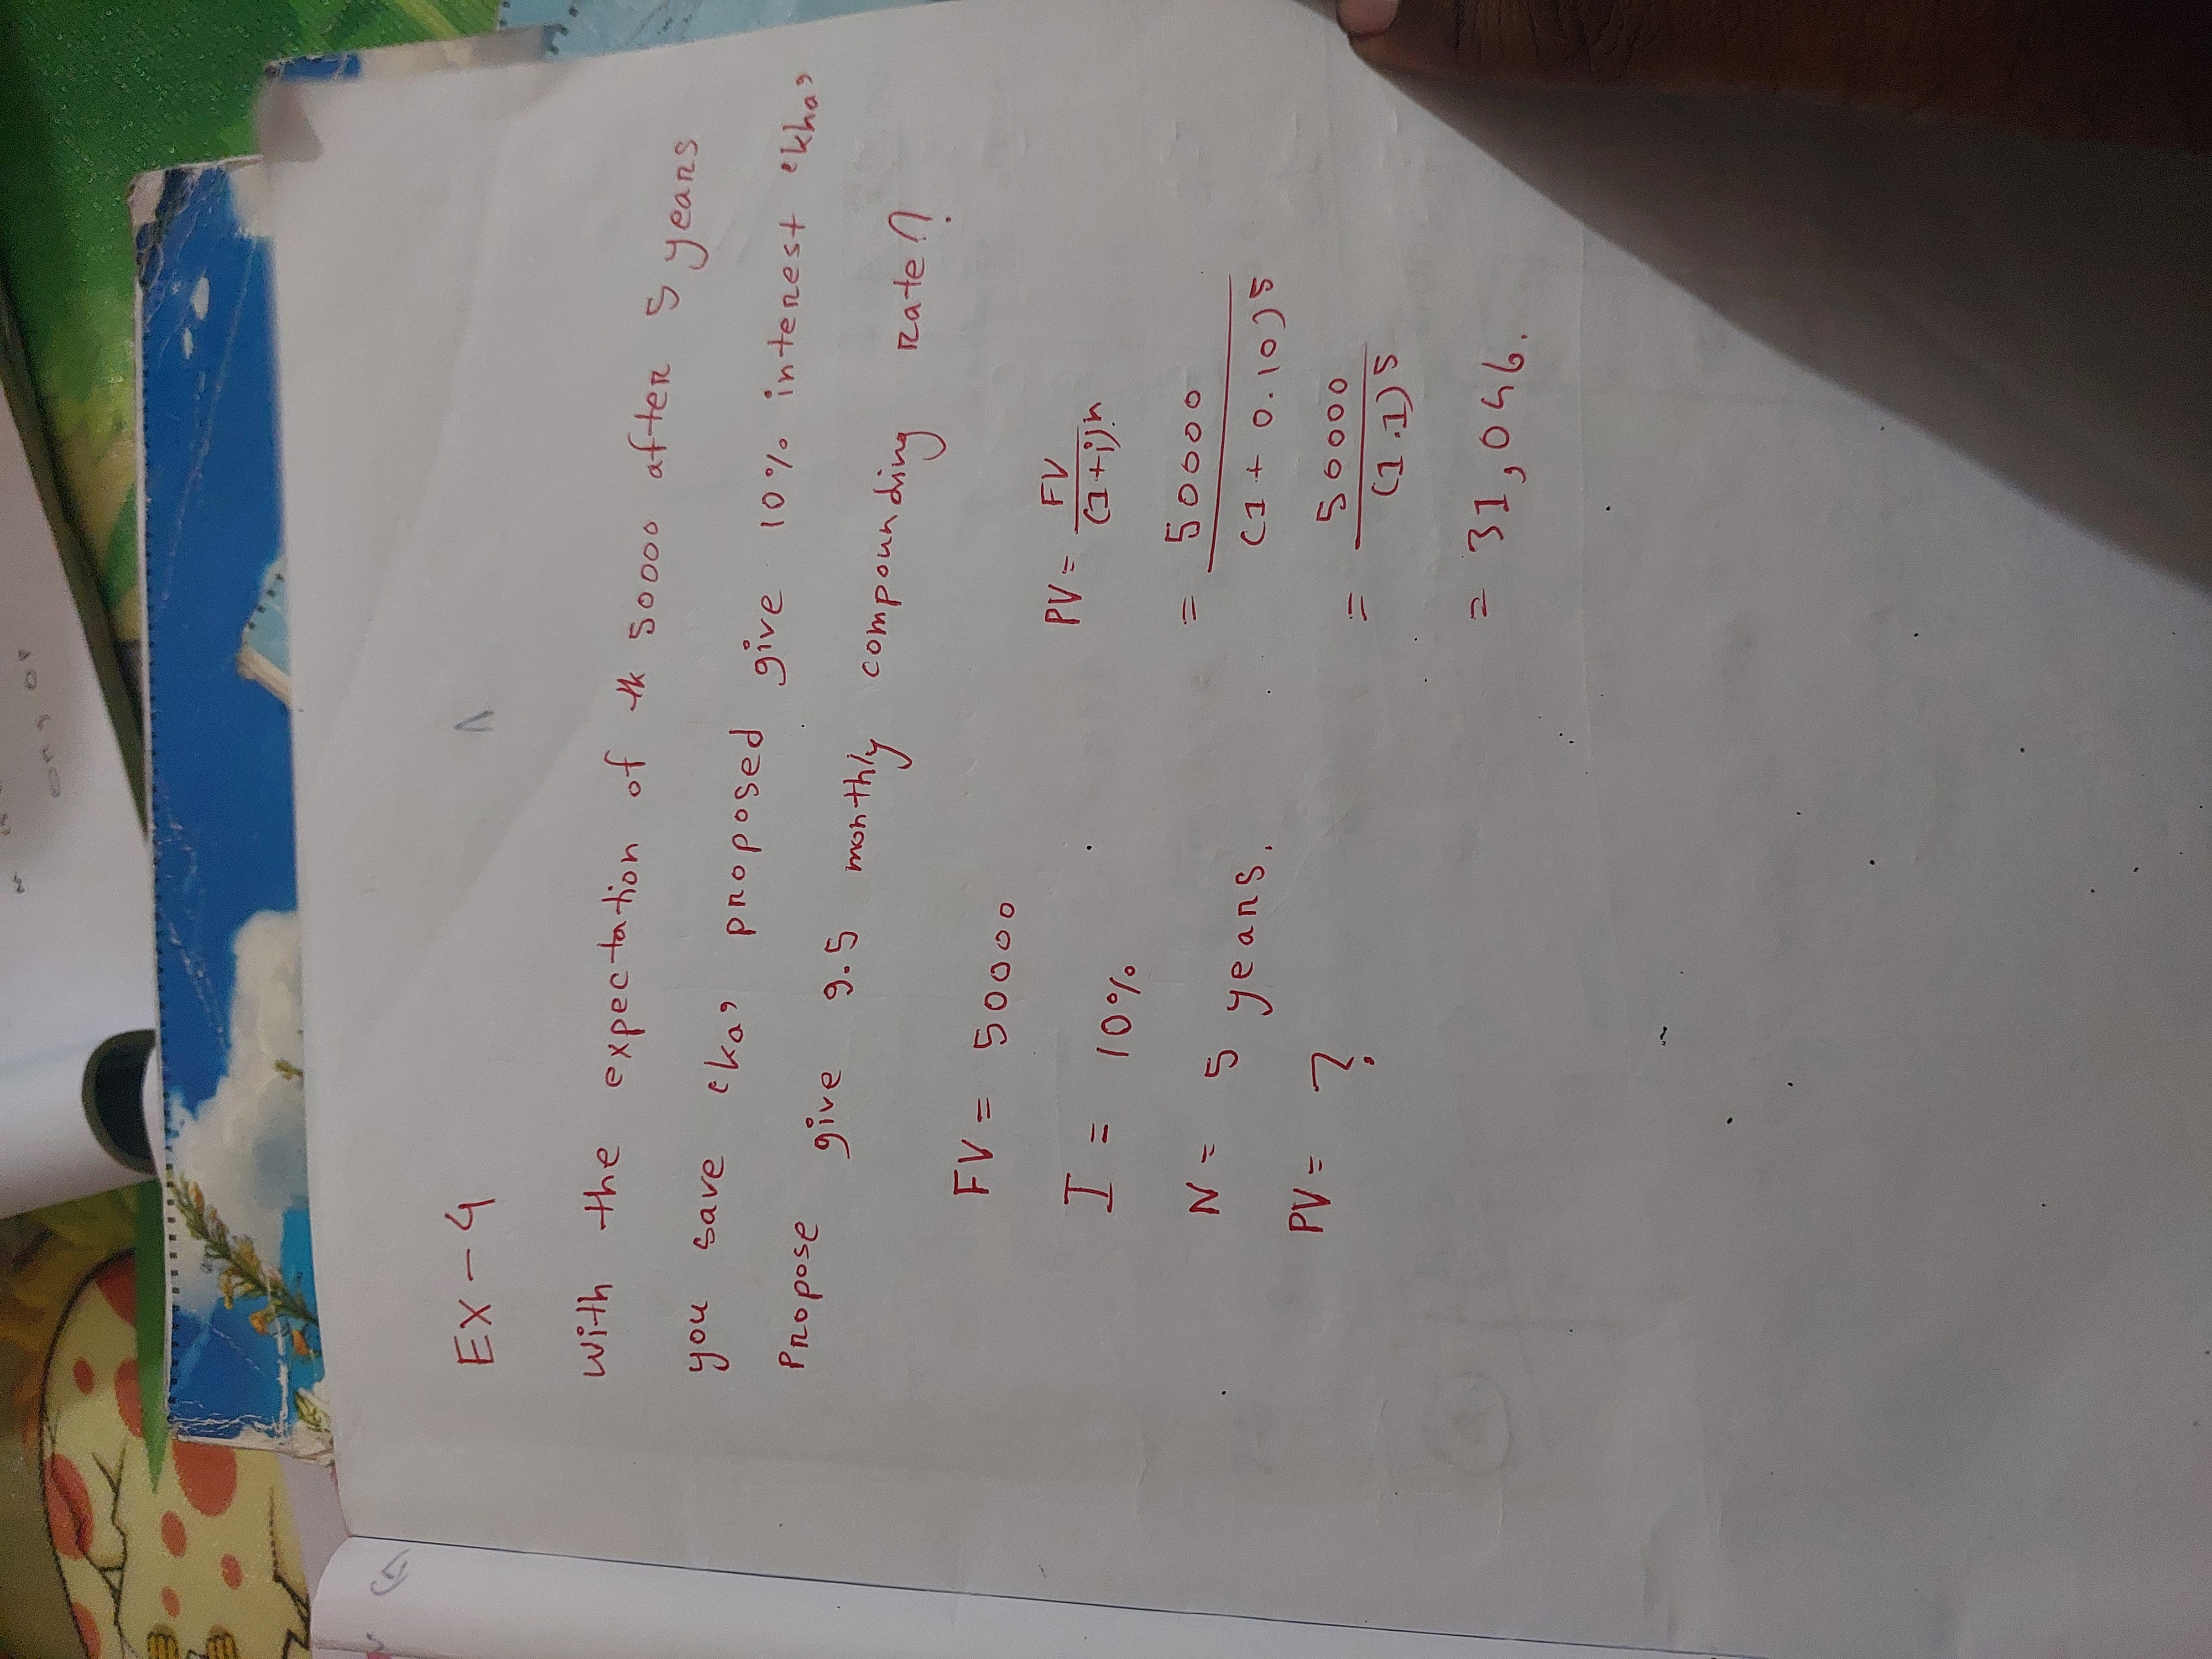 EX - 4
With the expectation of tk 50000 after 5 years
you save 'ka, proposed give 10% interest 'kha,
Propose give 9.5 monthly compounding rate?
FV = 50000
I = 10%
N = 5 years.
PV = ?
PV = FV / (1+i)n
= 50000 / (1 + 0.10)5
= 50000 / (1.1)5
= 31,046.